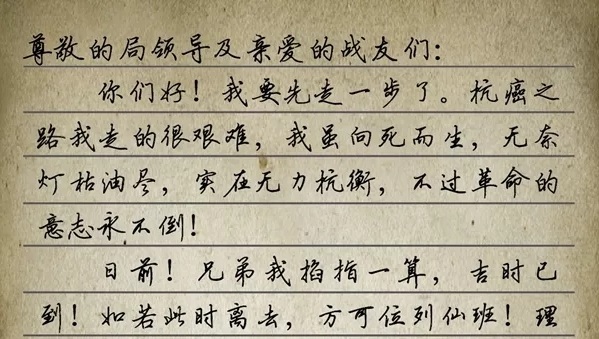 尊敬的局领导及亲爱的战友们：
你们好！我要先走一步了。抗癌之
路我走的很艰难，我虽向死而生，无奈
灯枯油尽，实在无力抗衡，不过革命的
意志永不倒！
日前！兄弟我掐指一算，吉时已
到！如若此时离去，方可位列仙班！理